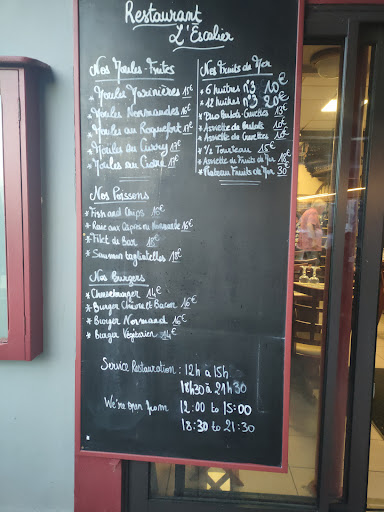 Restaurant
L'Escalier
Nos Moules Frites
* Moules Marinières 15€
* Moules Normandes 17€
* Moules au Roquefort 17€
* Moules au Curry 17€
* Moules au Cidre 17€
Nos Poissons
* Fish and Chips 16€
* Raie aux Câpres ou Normande 16€
* Filet de Bar 18€
* Saumon tagliatelles 18€
Nos Burgers
* Cheeseburger 14€
* Burger Chèvre et Bacon 16€
* Burger Normand 16€
* Burger Végétarien 14€
Nos Fruits de Mer
* 6 huîtres n°3 10€
* 12 huîtres n°3 20€
* Duo Bulots-Crevettes
* Assiette de Bulots
* Assiette de Crevettes
* 1/2 Tourteau 15€
* Assiette de Fruits de Mer
* Plateau Fruits de Mer 30€
Service Restauration : 12h à 15h
18h30 à 21h30
We're open from 12:00 to 15:00
18:30 to 21:30